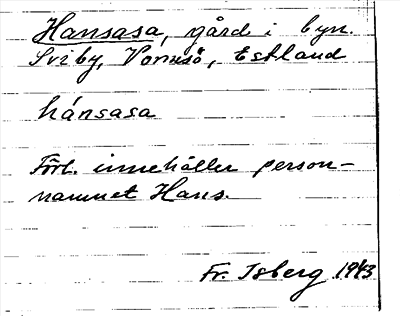 Hansasa, gård i byn.
Sviby, Vormsö, Estland
hánsasa
Förl. innehåller person-
namnet Hans.
Fr. Isberg 1943